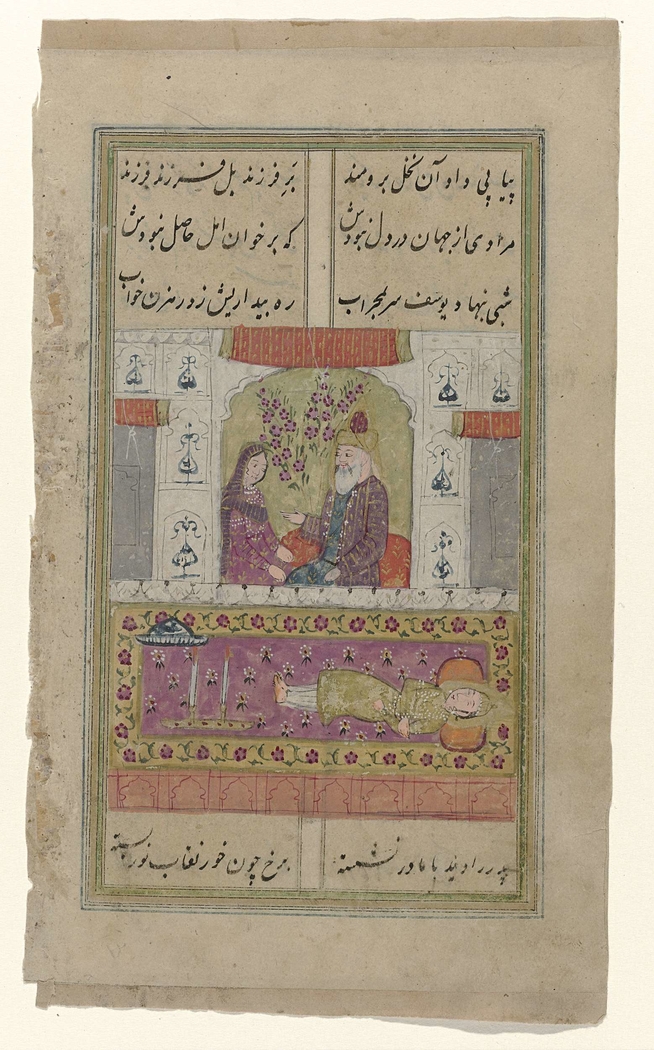 پیا پی داد آن نخل برومند بر فرزند بل فرزند فرزند
مرادی از جهان در دل نبودش که بر خوان امل حاصل نبودش
شبی بنهاد یوسف سر بمحراب ره بیداریش زد رهزن خواب
پدر را دید با مادر نشسته برخ چون خور نقاب نور بسته